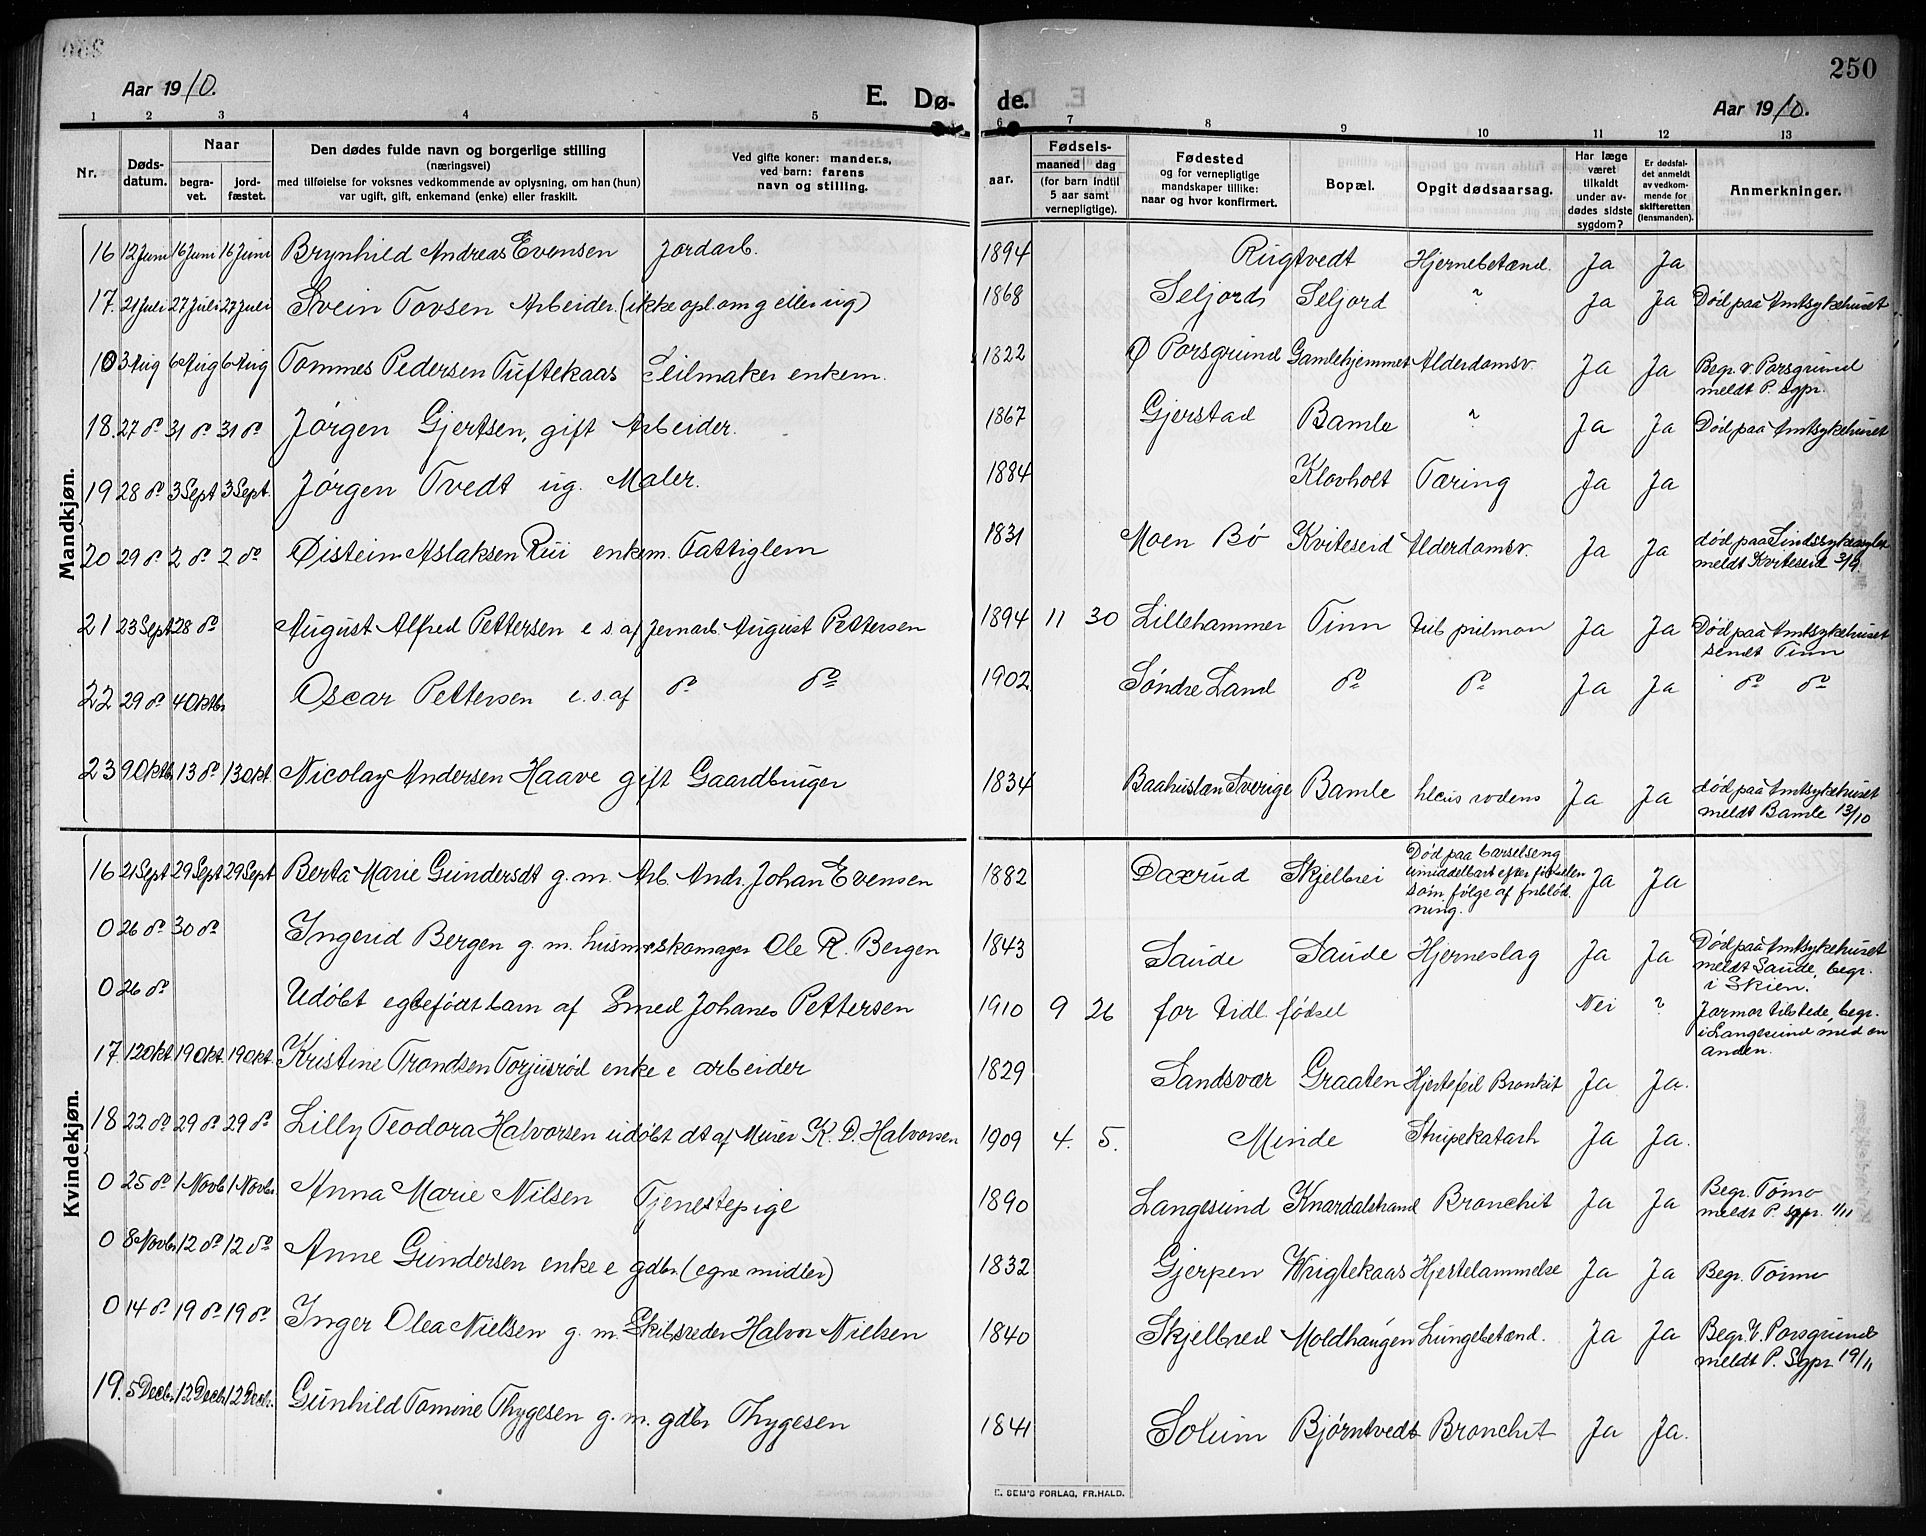 250
Aar 1910.
E. Dø- de.
Aar 1910.
1 2 3 4 5 6 7 8 9 10 11 12 13
Nr.
Døds-datum.
Naar
begra-vet.
jord-fæstet.
Den dødes fulde navn og borgerlige stilling
(næringsvei)
med tilføielse for voksnes vedkommende av oplysning, om han (hun)
var ugift, gift, enkemand (enke) eller fraskilt.
Ved gifte koner: mandens,
ved barn: farens
navn og stilling.
aar.
Fødsels-
maaned dag
(for barn indtil
5 aar samt
vernepligtige).
Fødested
og for vernepligtige
mandskaper tillike:
naar og hvor konfirmert.
Bopæl.
Opgit dødsaarsag.
Har læge
været
tilkaldt
under av-
dødes sidste
sygdom?
Er dødsfal-
det anmeldt
av vedkom-
mende for
skifteretten
(lensmanden).
Anmerkninger.
Mandkjøn.
16 12 Juni 16 Juni 16 Juni Brynhild Andreas Evensen Jordarb. 1894 Rugtvedt Hjernebetænd. Ja Ja
17. 21 Juli 27 Juli 27 Juli Svein Tovsen Arbeider. (ikke opl. om g eller ug) 1868 Seljord Seljord " Ja Ja Død paa Amtsykehuset
10 3 Aug 6 Aug 6 Aug Tommes Pedersen Tuftekaas Seilmaker enkem. 1822 Ø Porsgrund Gamlehjemmet Alderdomsv. Ja Ja Begr. V. Porsgrund
meldt P. sgpr.
18. 27 do 31 do 31 do Jørgen Gjertsen, gift Arbeider. 1867 Gjerstad Bamle " Ja Ja Død paa Amtsykehuset
19 28 do 3 Sept 3 Sept. Jørgen Tvedt ug. Maler. 1884 Klovholt Tæring Ja Ja
20 29 do 2 do 2 do Øistein Aslaksen Rui enkem. Fattiglem 1831 Moen Bø Kviteseid Alderdomsv. Ja Ja død paa Sindssykeasylet
meldt Kviteseid 3/9.
21 23 Sept 28 do August Alfred Pettersen e s. af Jernarb. August Pettersen 1894 11 30 Lillehammer Tinn tub pulmon Ja Ja Død paa Amtsykehuset
sendt Tinn
22 29 do 4 Oktbr Oscar Pettersen e. s. af do do 1902 Søndre Land do do Ja Ja do do
23 9 Oktb. 13 do 13 Okt. Nicolay Andersen Haave gift Gaardbruger 1834 Baahuslæn Sverige Bamle Ja Ja død paa Amtsykehuset
meldt Bamle 13/10
Kvindekjøn.
16 21 Sept 29 Sept 29 Sept Berta Marie Gundersdt g. m. Arb. Andr. Johan Evensen 1882 Daxrud Skjelbrei Død paa barselseng
umiddelbart efter fødselen
som følge af forblød-
ning. Ja Ja
0 26 do 30 do Ingerid Bergen g. m. husmr skomager Ole R. Bergen 1843 Saude Saude Hjerneslag Ja Ja Død paa Amtsykehuset
meldt Saude, begr.
i Skien.
0 26 do Udøbt egtefødt barn af Smed Johanes Pettersen 1910 9 26 for tidl. fødsel Nei " Jormor tilstede, begr.
i Langesund med en
anden.
17. 12 Okt 19 Okt. 19 Okt Kristine Trondsen Torjusrød enke e arbeider 1829 Sandsvær Graaten Hjertefeil Bronkit Ja Ja.
18 22 do 29 do 29 do Lilly Teodora Halvorsen udøbt dt af Murer K. D. Halvorsen 1909 4. 5. Minde Strupekatarh Ja Ja.
0 25 do 1 Novb 1 Novbr. Anna Marie Nilsen Tjenestepige 1890 Langesund Knardalstrand Bronchit Ja Ja Begr. Tømo
meldt P. sgpr. 1/11
0 8 Novbr 12 do 12 do Anne Gundersen enke e gdbr. (egne midler) 1832 Gjerpen Vrigtekaas Hjertelammelse Ja Ja Begr. Tømo
0 14 do 19 do 19 do Inger Olea Nielsen g. m. Skibsreder Halvor Nielsen 1840 Skjelbred Moldhaugen Lungebetænd. Ja Ja Begr. V. Porsgrund
meldt P. Sgpr 19/11
19. 5 Decbr 12 Decbr 12 Decbr. Gunhild Tomine Thygesen g. m. gdbr Thygesen 1841 Solum Bjørntvedt Bronchit Ja Ja.
E. SEM'S FORLAG, FR.HALD.